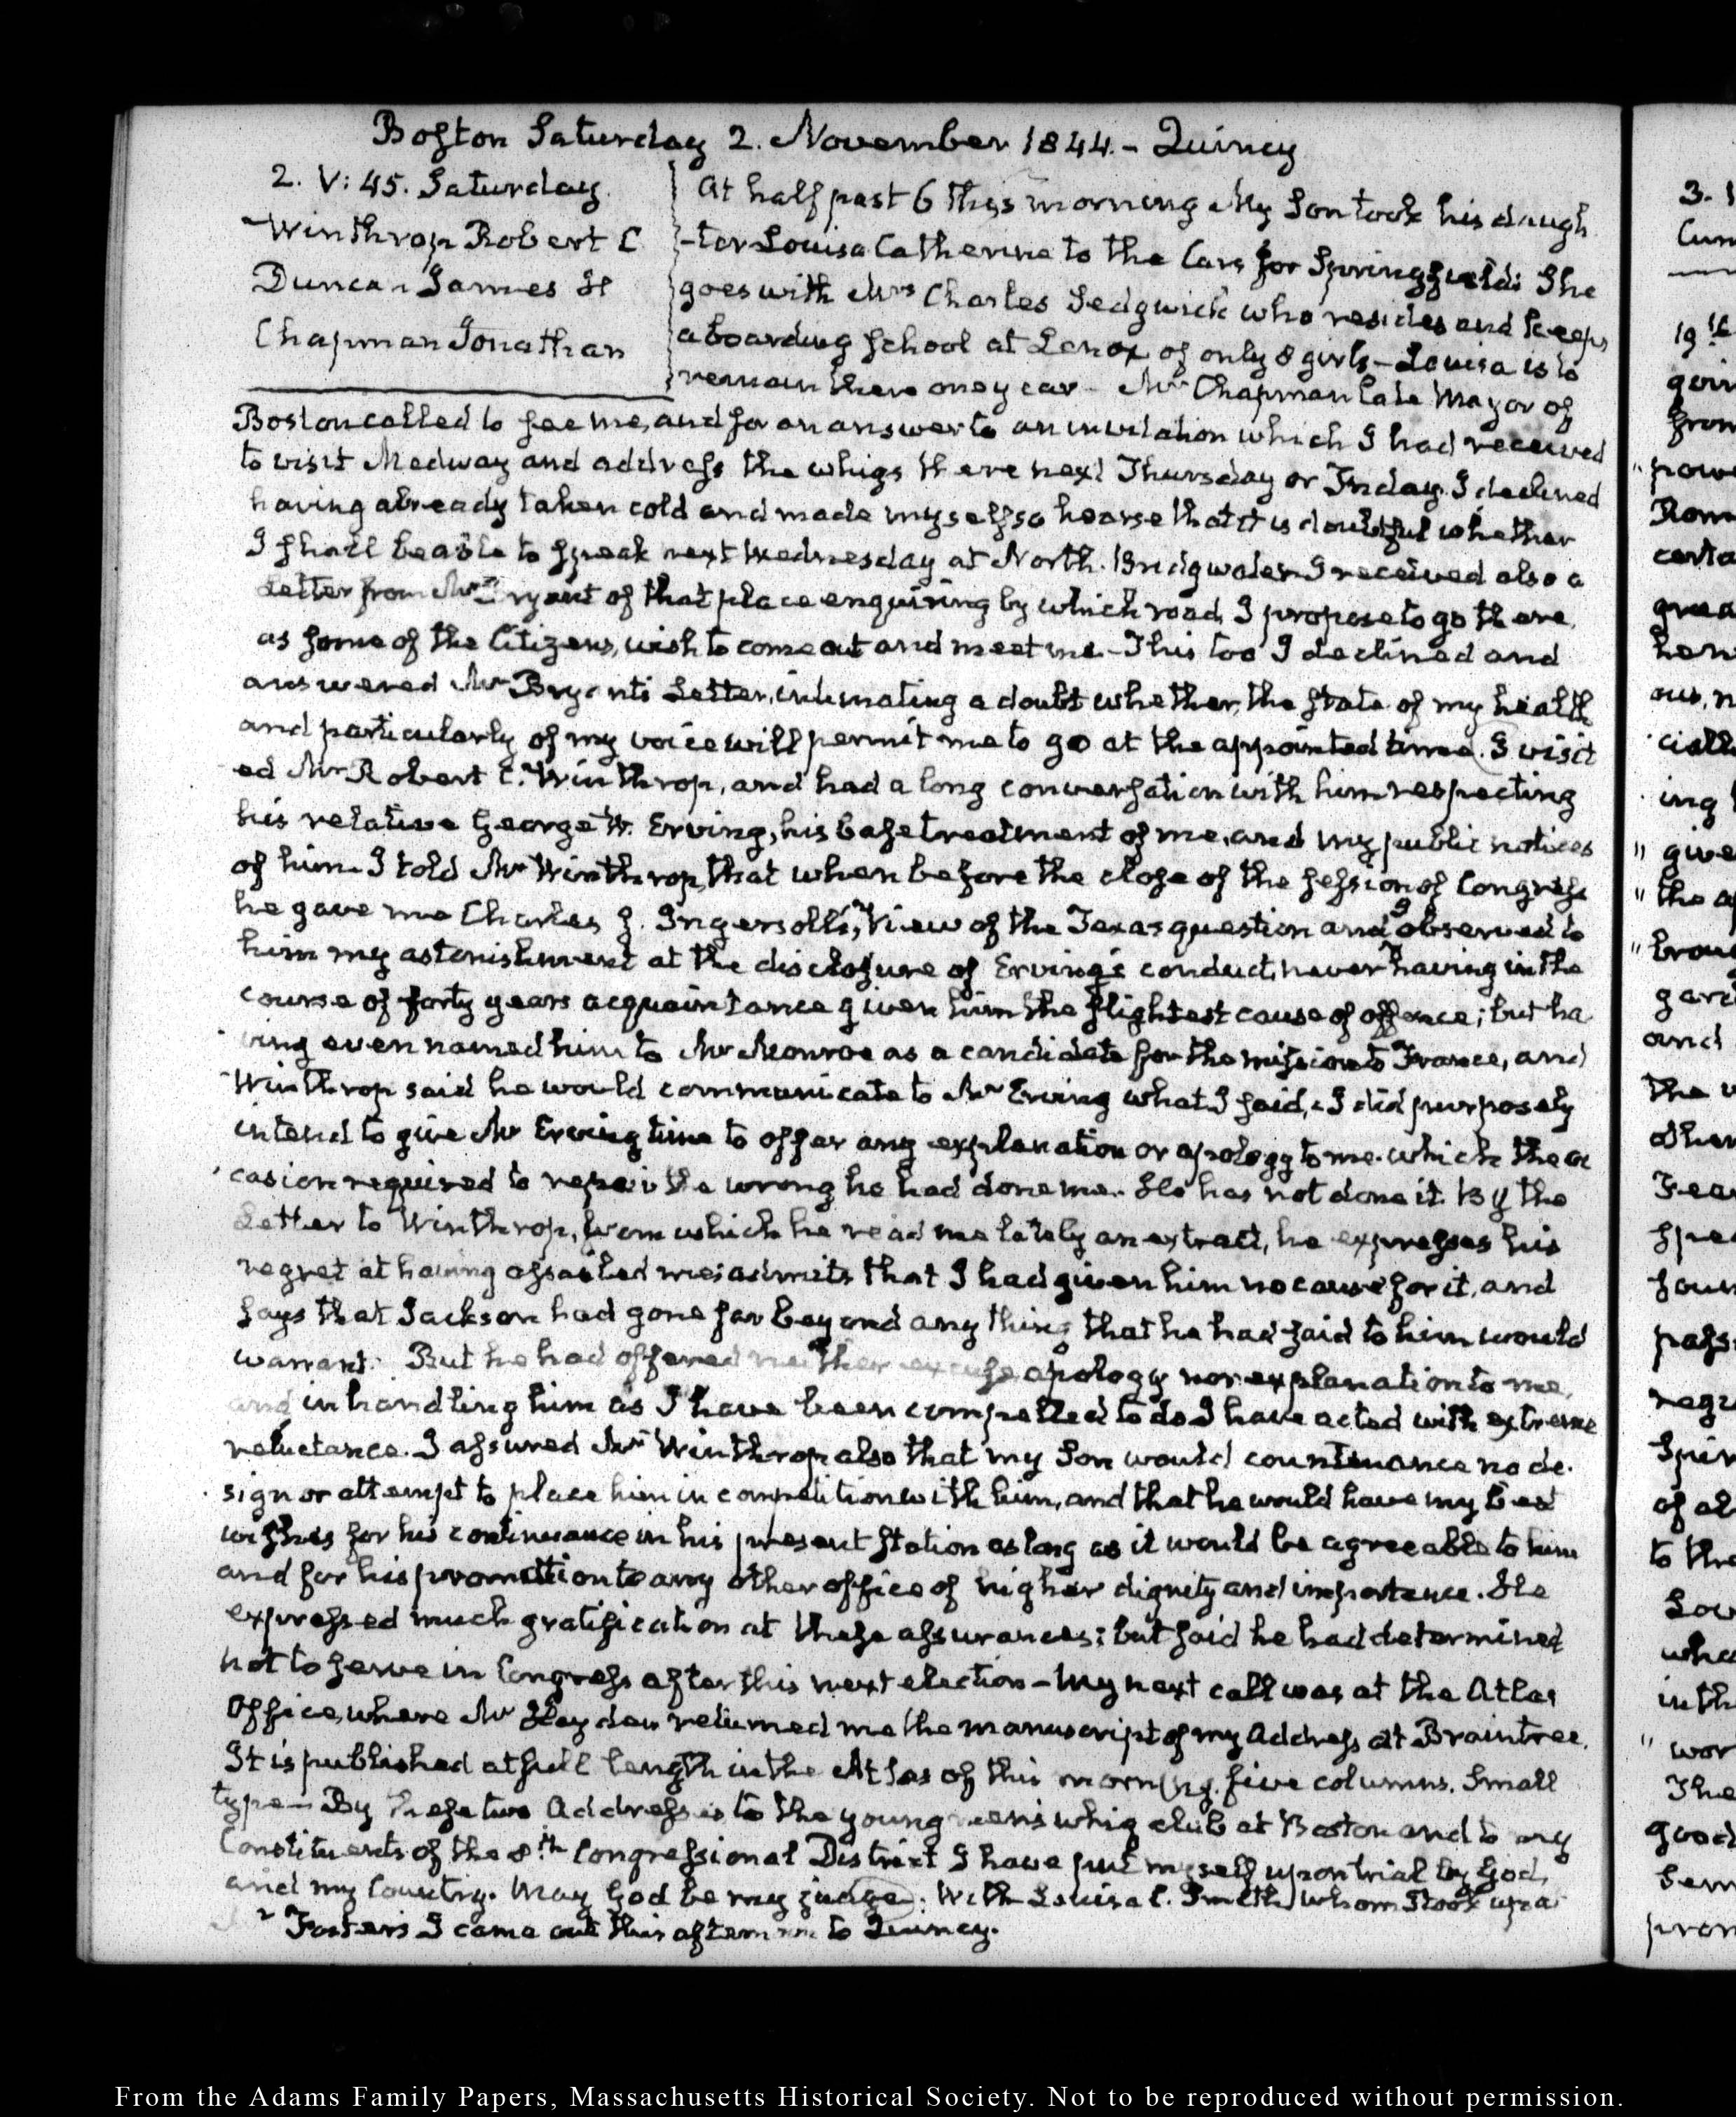 Boston Saturday 2. November 1844.- Quincy
2. V: 45. Saturday.
Winthrop Robert C
Duncan James H
Chapman Jonathan
At half past 6 this morning My Son took his daugh
-ter Louisa Catherine to the Cars for Springfield: She
goes with Mrs Charles Sedgwick who resides and keeps
a boarding School at Lenox of only 8 girls - Louisa is to
remain there one year - Mr Chapman late Mayor of
Boston called to see me, and for an answer to an invitation which I had received
to visit Medway and address the whigs there next Thursday or Friday. I declined
having already taken cold and made myself so hoarse that it is doubtful whether
I shall be able to speak next Wednesday at North. Bridgwater. I received also a
Letter from Mr Bryant of that place enquiring by which road, I propose to go there,
as some of the Citizens, wish to come out and meet me - This too I declined and
answered Mr Bryant's Letter, intimating a doubt whether, the state of my health
and particularly of my voice will permit me to go at the appointed time. I visit
ed Mr Robert C. Winthrop, and had a long conversation with him respecting
his relative George W. Erving, his base treatment of me, and my public notices
of him. I told Mr Winthrop, that when before the close of the session of Congress
he gave me Charles J. Ingersoll's, View of the Texas question and I observed to
him my astonishment at the disclosure of Erving's conduct, never having in the
course of forty years acquaintance given him the slightest cause of offence; but ha
ving even named him to Mr Monroe as a candidate for the mission to France, and
Winthrop said he would communicate to Mr Erving what I said, I did purposely
intend to give Mr Erving time to offer any explanation or apology to me which the oc
casion required to repair the wrong he had done me. He has not done it. By the
Letter to Winthrop, from which he read me lately an extract, he expresses his
regret at having assailed me; admits that I had given him no cause for it, and
says that Jackson had gone far beyond any thing that he had said to him would
warrant. But he had offered neither excuse apology nor explanation to me,
and in handling him as I have been compelled to do I have acted with extreme
reluctance. I assured Mr Winthrop also that my Son would countenance no de-
sign or attempt to place him in competition with him, and that he would have my best
wishes for his continuance in his present station as long as it would be agreeable to him
and for his promotion to any other office of higher dignity and importance. He
expressed much gratification at these assurances; but said he had determined
not to serve in Congress after this next election - My next call was at the Atlas
Office, where Mr Hayden returned me the manuscript of my Address at Braintree.
It is published at full length in the Atlas of this morning. five columns. Small
type - By these two Addresses to the young men's whig club at Boston and to my
Constituents of the 8th. Congressional District I have put myself upon trial by God,
and my Country. May God be my judge. With Louisa C. Smith, whom I took up at
Foster's I came out this afternoon to Quincy.
3.
19th
From the Adams Family Papers, Massachusetts Historical Society. Not to be reproduced without permission.